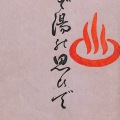 湯の思ひで